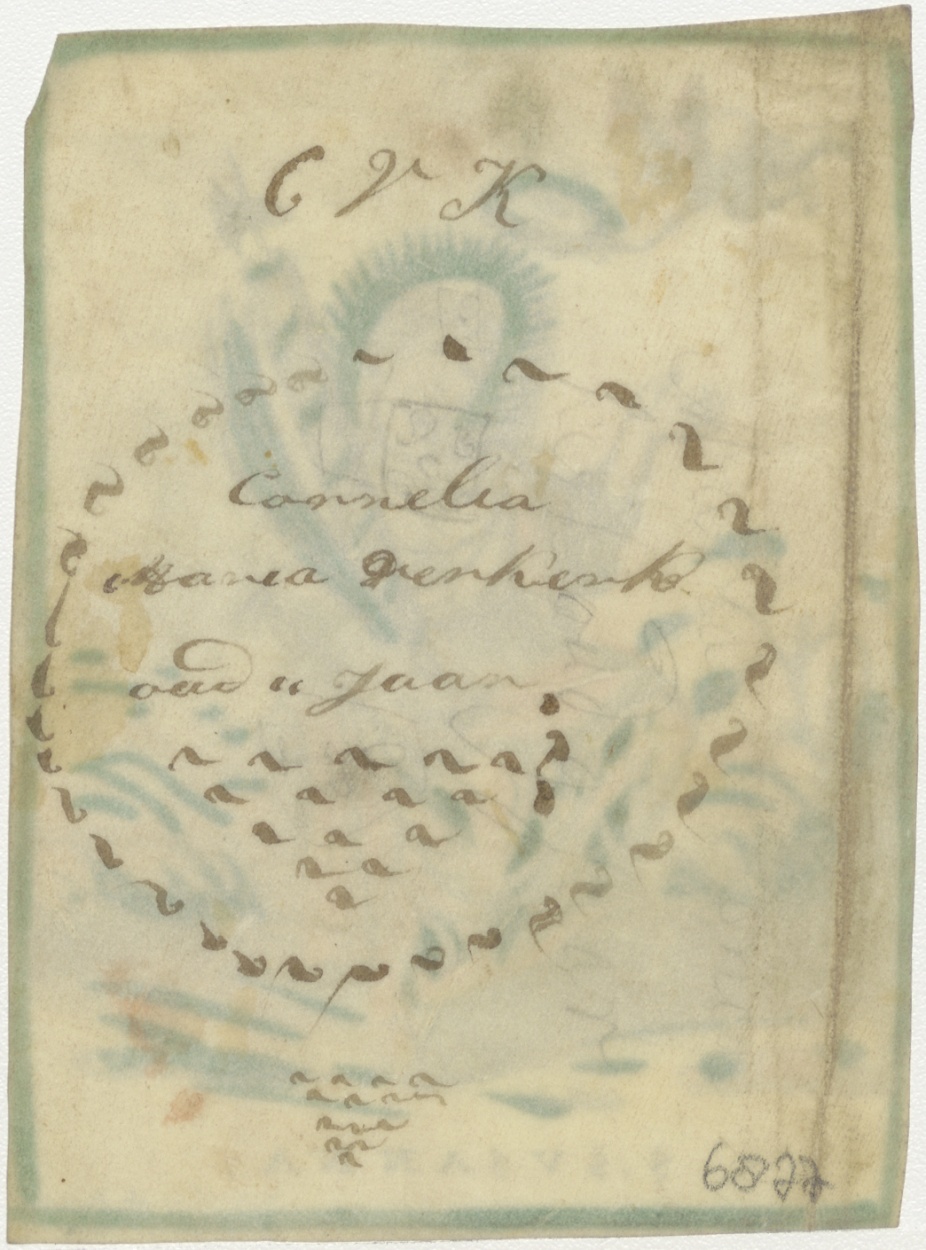 C V K
Cornelia
Maria Verkerk
oud 11 Jaar
6877